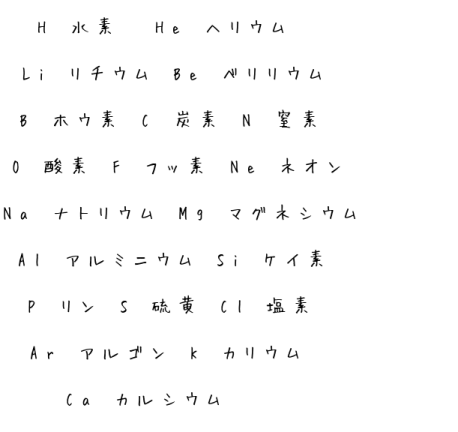 H 水素 He ヘリウム
Li リチウム Be ベリリウム
B ホウ素 C 炭素 N 窒素
O 酸素 F フッ素 Ne ネオン
Na ナトリウム Mg マグネシウム
Al アルミニウム Si ケイ素
P リン S 硫黄 Cl 塩素
Ar アルゴン k カリウム
Ca カルシウム